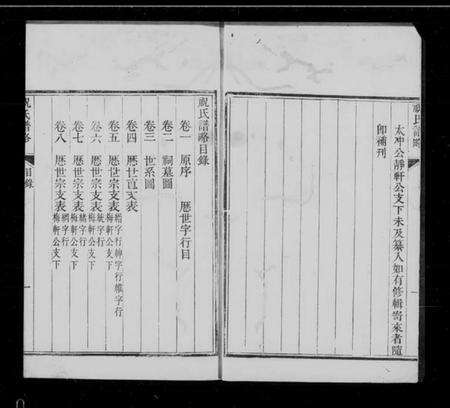 太冲公靜軒公支下未及纂入如有修輯寄來者隨
即補刊
祝氏譜略目錄
卷一 原序 歷世字行目
卷二 祠墓圖
卷三 世系圖
卷四 歷世宗支表
卷五 歷世宗支表
梅軒公支下
卷六 歷世宗支表
梅軒公支下
卷七 歷世宗支表
梅軒公支下
卷八 歷世宗支表
梅軒公支下
目錄
一